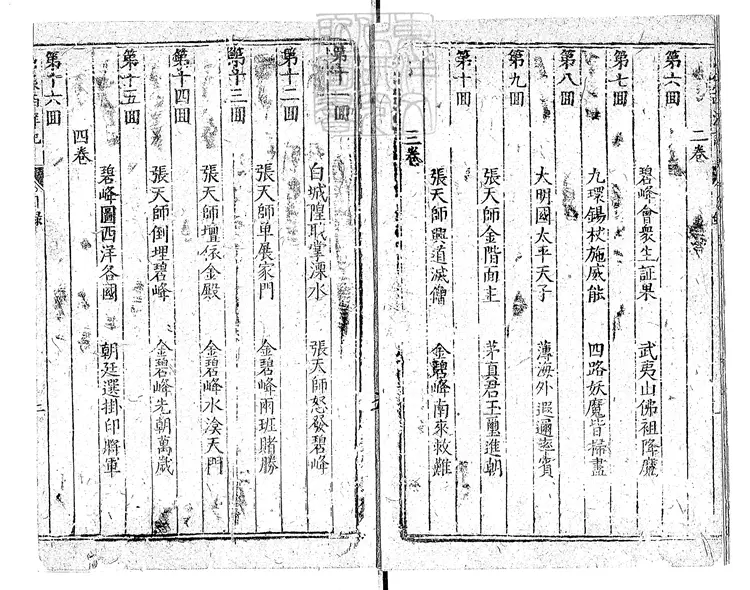 二卷
第六回
碧峰會衆生証果 武夷山佛祖降魔
第七回
九環錫杖施威能 四路妖魔皆掃盡
第八回
大明國太平天子 薄海外遐邇率賓
第九回
張天師金階面主 茅真君玉璽進朝
第十回
張天師興道滅僧 金碧峰南來救難
三卷
第十一回
白城隍取掌溧水 張天師怒發碧峰
第十二回
張天師單展家門 金碧峰兩班賭勝
第十三回
張天師壇依金殿 金碧峰水渰天門
第十四回
張天師倒埋碧峰 金碧峰先朝萬歲
第十五回
碧峰圖西洋各國 朝廷選掛印將軍
四卷
第十六回